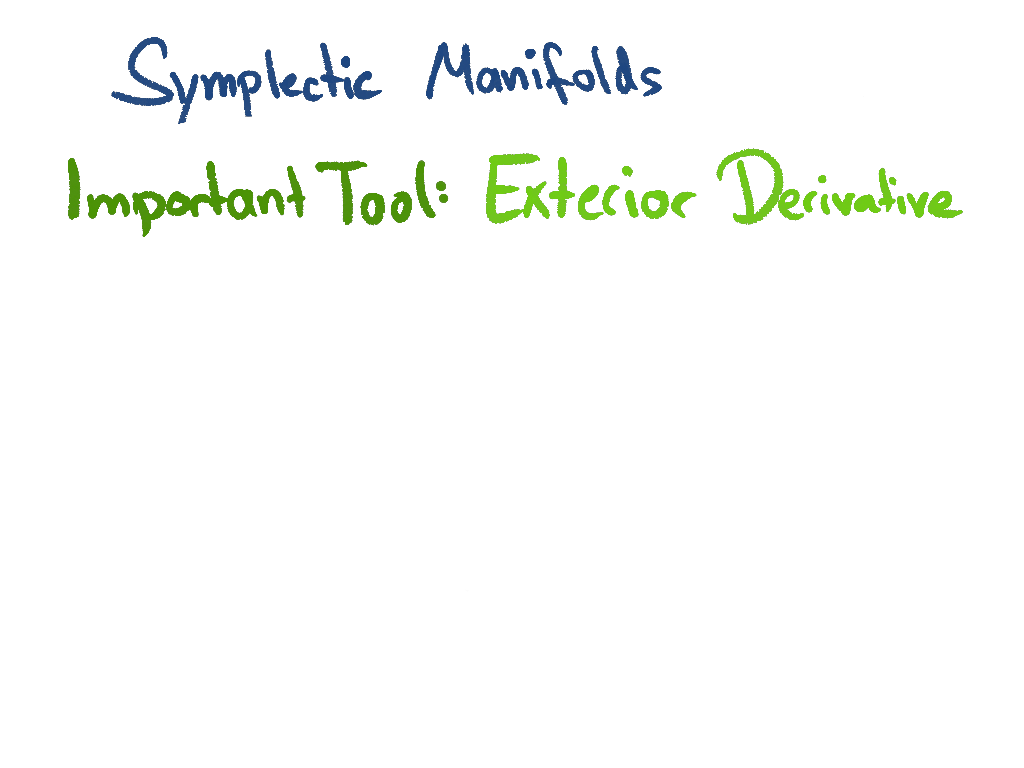 Symplectic Manifolds
Important Tool: Exterior Derivative